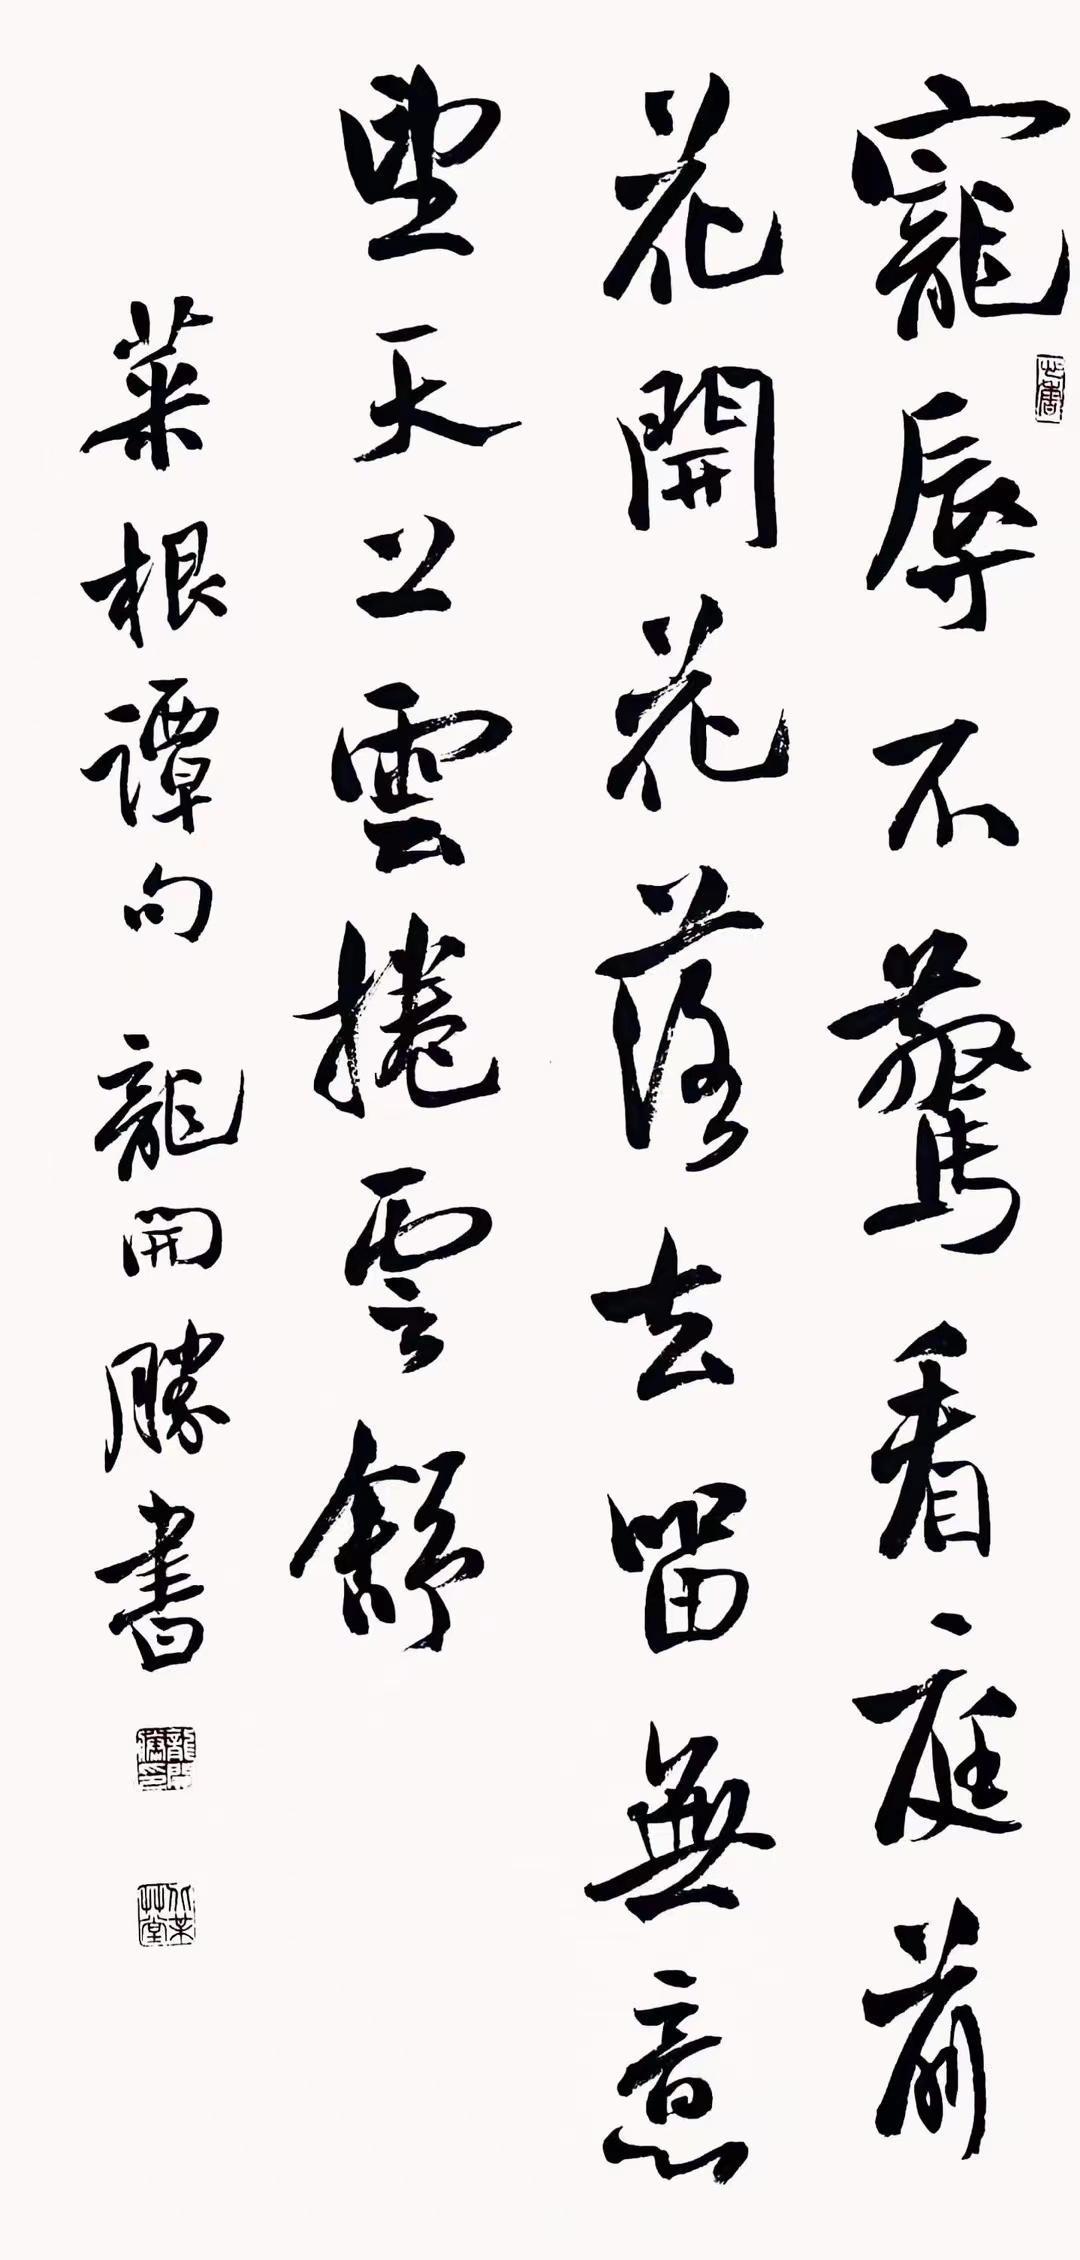 寵辱不驚看庭前
花開花落去留無意
望天上雲捲雲舒
菜根譚句 龍開勝書